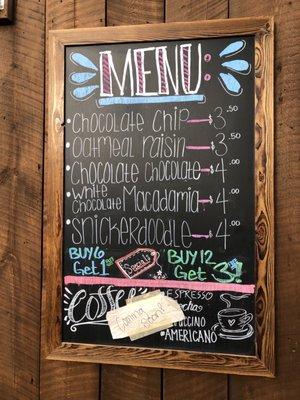 MENU: 3.50
chocolate chip 3.50
oatmeal raisin 4.00
chocolate chocolate 4.00
white chocolate Macadamia 4.00
snickerdoodle
BUY 6 Get 1
Specials
BUY 12 Get 3
Coffee
ESPRESSO
Mocha
Coming Soon!
#AMERICANO